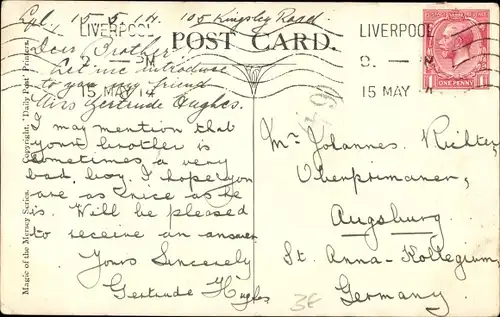 Lpl, 15.5.14. 105 Kingsley Road.
Dear Brother,
Let me introduce
to you my friend
Miss Gertrude Hughes.
I may mention that
your brother is
sometimes a very
bad boy. I hope you
are as nice as he
is. Will be pleased
to receive an answer
Yours Sincerely
Gertrude Hughes
POST CARD.
LIVERPOOL
15 MAY 14
LIVERPOOL
15 MAY
ONE PENNY
Mr Johannes Richter
Oberprimaner,
Augsburg.
St. Anna-Kollegium
Germany.
3E
Magic of the Mersey Series. Copyright, 'Daily Post' Printers.